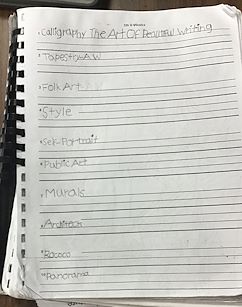 Calligraphy The Art Of Beautiful Writing
Tapestry
Folk Art
Style
Self-Portrait
Public Art
Murals
Architect
Rococo
Panorama